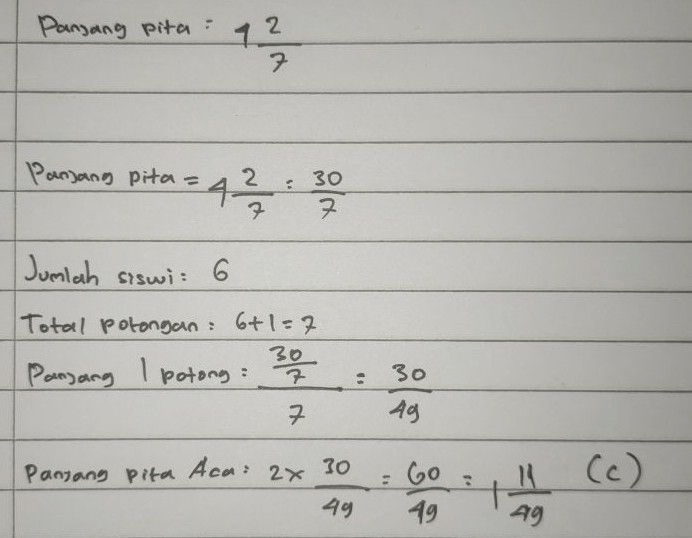 Panjang pita : 4 2/7
Panjang pita = 4 2/7 : 30/7
Jumlah siswi : 6
Total potongan : 6+1 = 7
Panjang 1 potong : (30/7)/7 = 30/49
Panjang pita Aca : 2 x 30/49 = 60/49 = 1 11/49 (c)